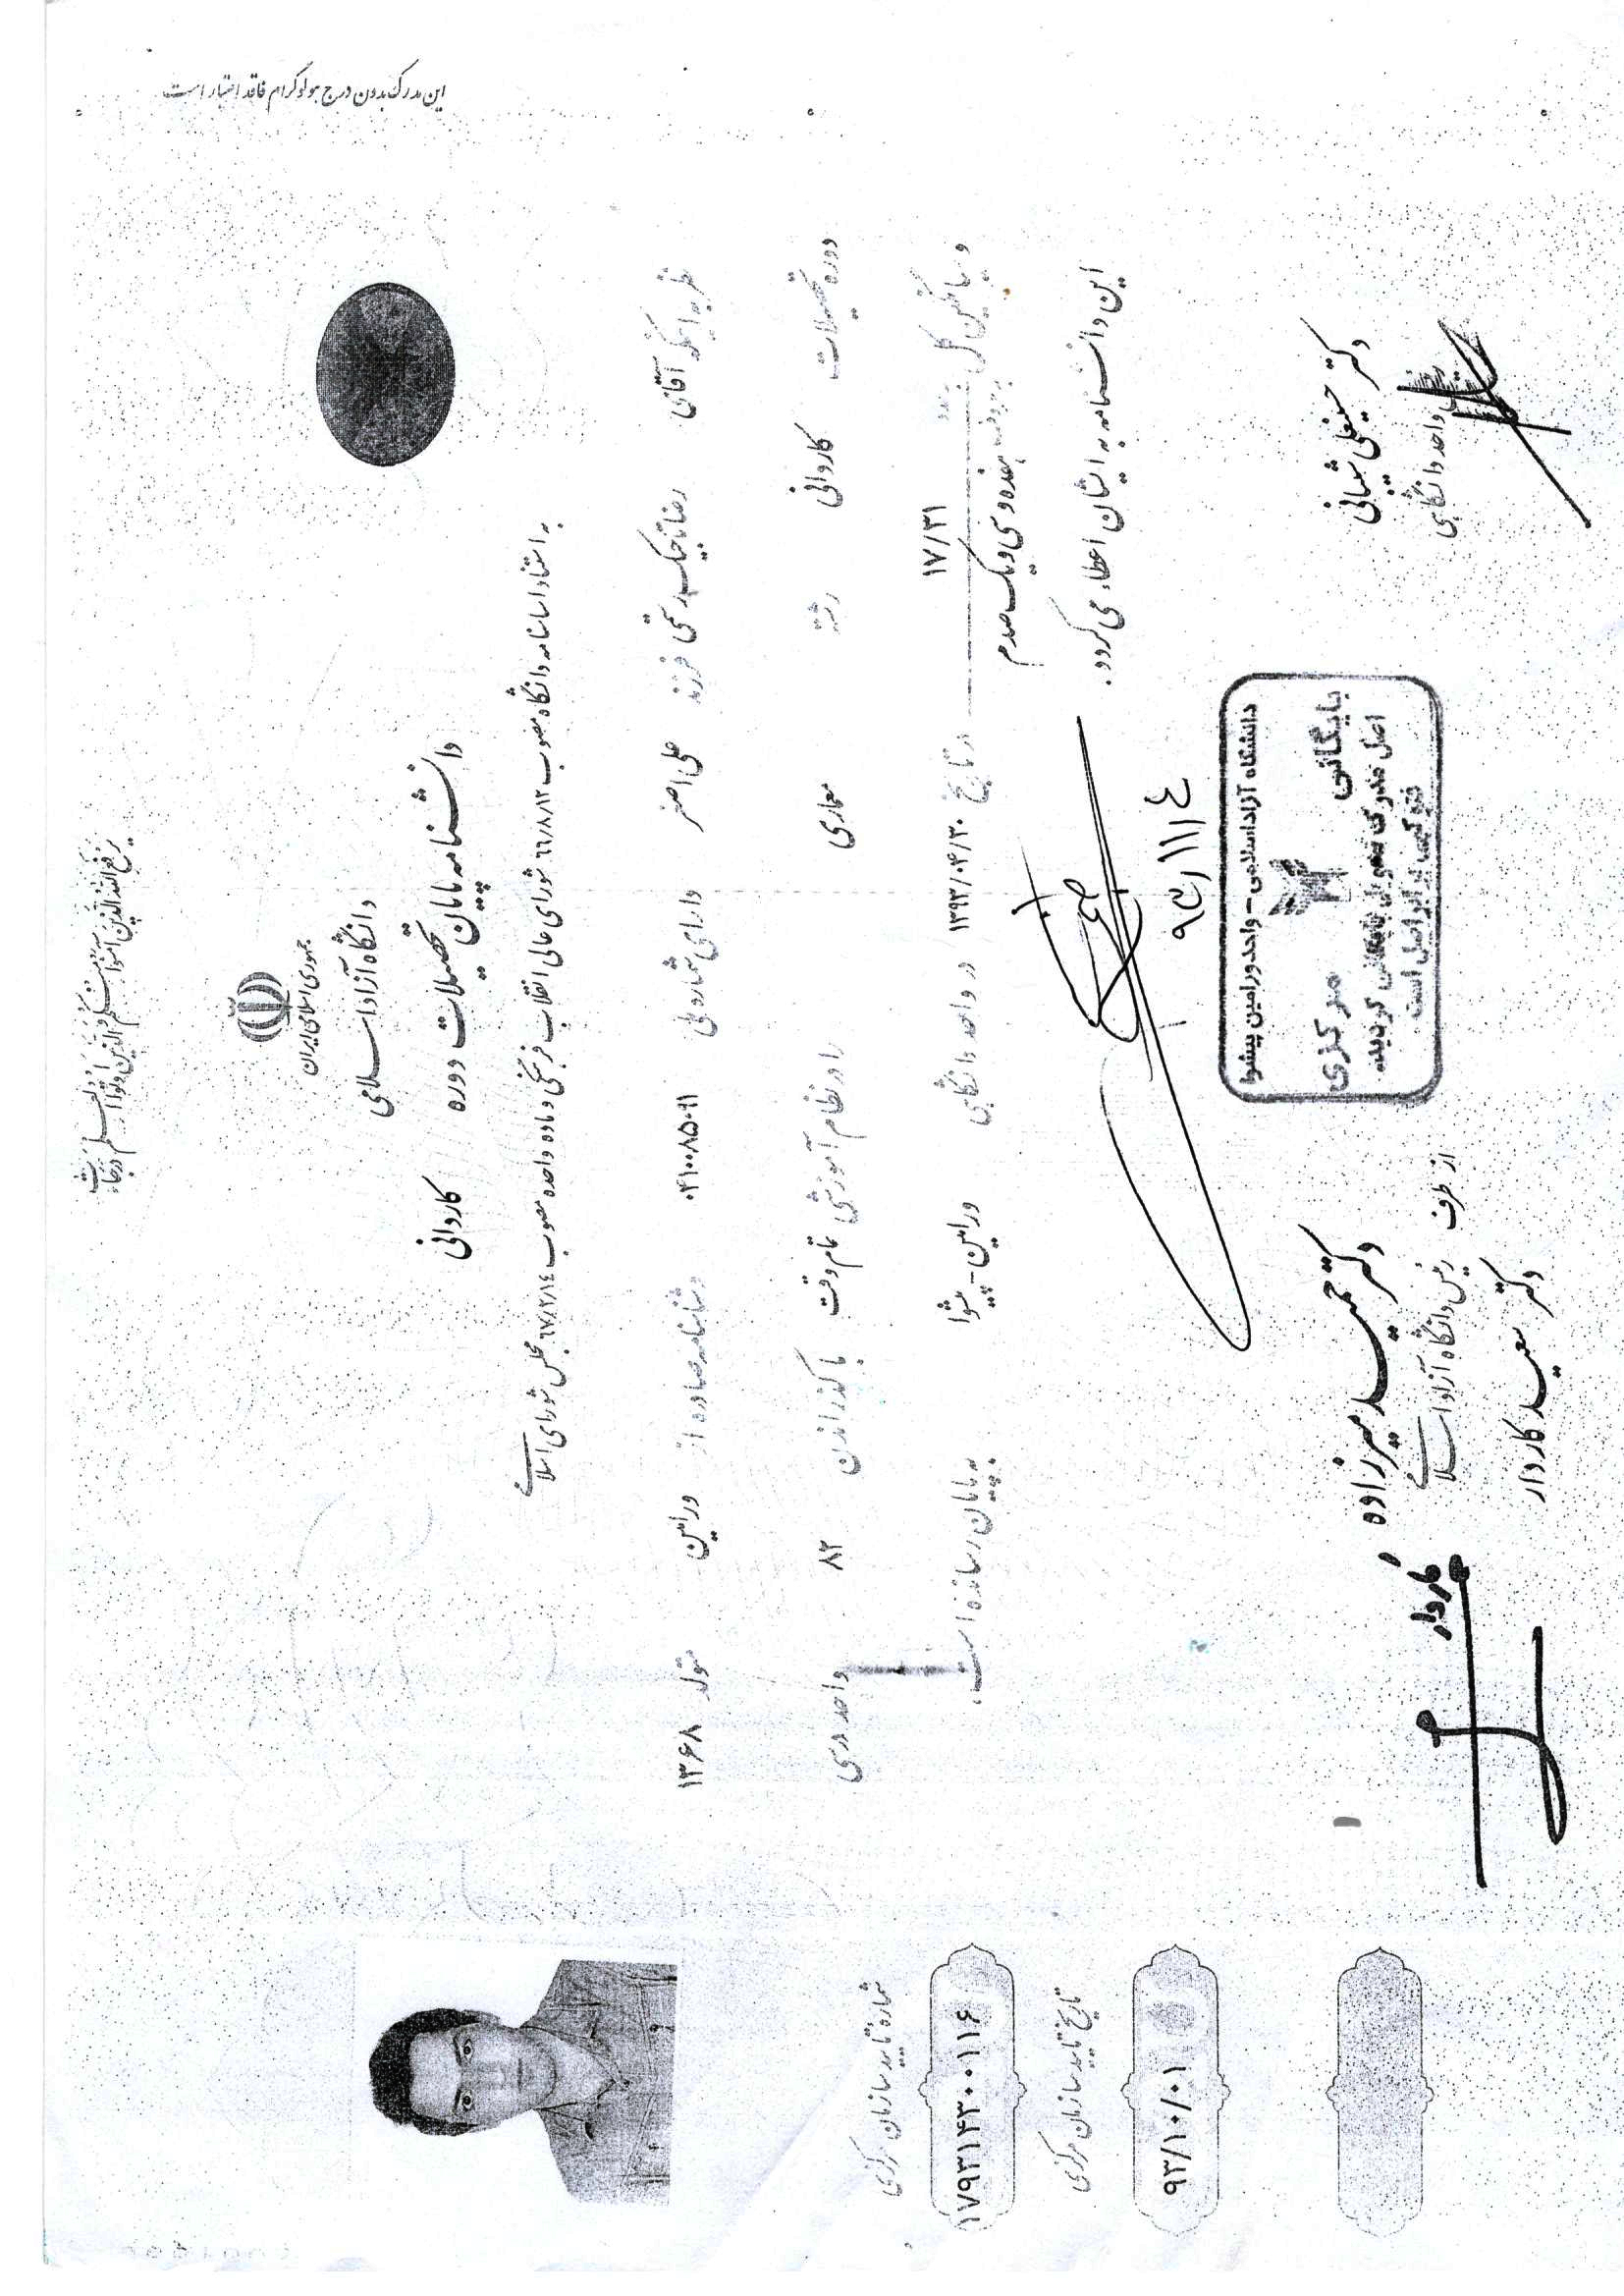 این مدرک بدون درج هولوگرام فاقد اعتبار است
یرفع الله الذین آمنوا منکم والذین اوتوا العلم درجات
جمهوری اسلامی ایران
دانشگاه آزاد اسلامی
دانشنامه پایان تحصیلات دوره کاردانی
به استناد اساسنامه دانشگاه مصوب ۶۶/۸/۱۲ شورای عالی انقلاب فرهنگی و ماده واحده مصوب ۶۷/۲/۱۴ مجلس شورای اسلامی
نظر به اینکه آقای رضا تاجیک رستمی فرزند علی اصغر دارای شماره ملی ۰۴۱۰۰۸۵۰۹۱ و شناسنامه صادره از ورامین متولد ۱۳۶۸
دوره تحصیلات کاردانی رشته معماری را در نظام آموزشی تمام وقت با گذراندن ۸۲ واحد درسی
و میانگین کل به عدد ۱۷/۳۱ به حروف هفده و سی و یک صدم در تاریخ ۱۳۹۳/۰۴/۳۰ در واحد دانشگاهی ورامین-پیشوا به پایان رسانده است.
این دانشنامه به ایشان اعطاء می گردد.
۹۳/۱۱/۴
دانشگاه آزاد اسلامی - واحد ورامین پیشوا
بایگانی مرکزی
اصل مدرک تحویل بایگانی گردیده
فتوکپی برابر اصل است
دکتر حسینعلی شیبانی
رئیس واحد دانشگاهی
دکتر حمید میرزاده
رئیس دانشگاه آزاد اسلامی
از طرف
دکتر سعید کاردار
کاردار
شماره تایید سازمان مرکزی
۱۷۹۳۱۴۳۰۰۱۱۶
تاریخ تایید سازمان مرکزی
۹۳/۱۰/۰۱